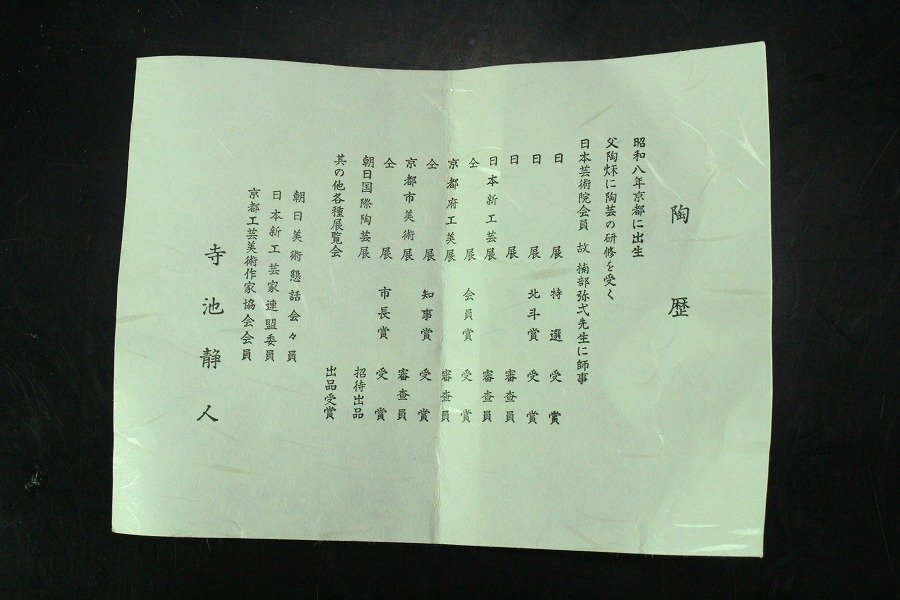 陶歴
昭和八年京都に出生
父陶烌に陶芸の研修を受く
日本芸術院会員 故 楠部弥弌先生に師事
日展 特選 受賞
日展 北斗賞 受賞
日展 審査員
日本新工芸展 審査員
仝展 会員賞 受賞
京都府工美展 審査員
仝展 知事賞 受賞
京都市美術展 審査員
仝展 市長賞 受賞
朝日国際陶芸展 招待出品
其の他各種展覧会 出品受賞
朝日美術懇話会々員
日本新工芸家連盟委員
京都工芸美術作家協会会員
寺池静人